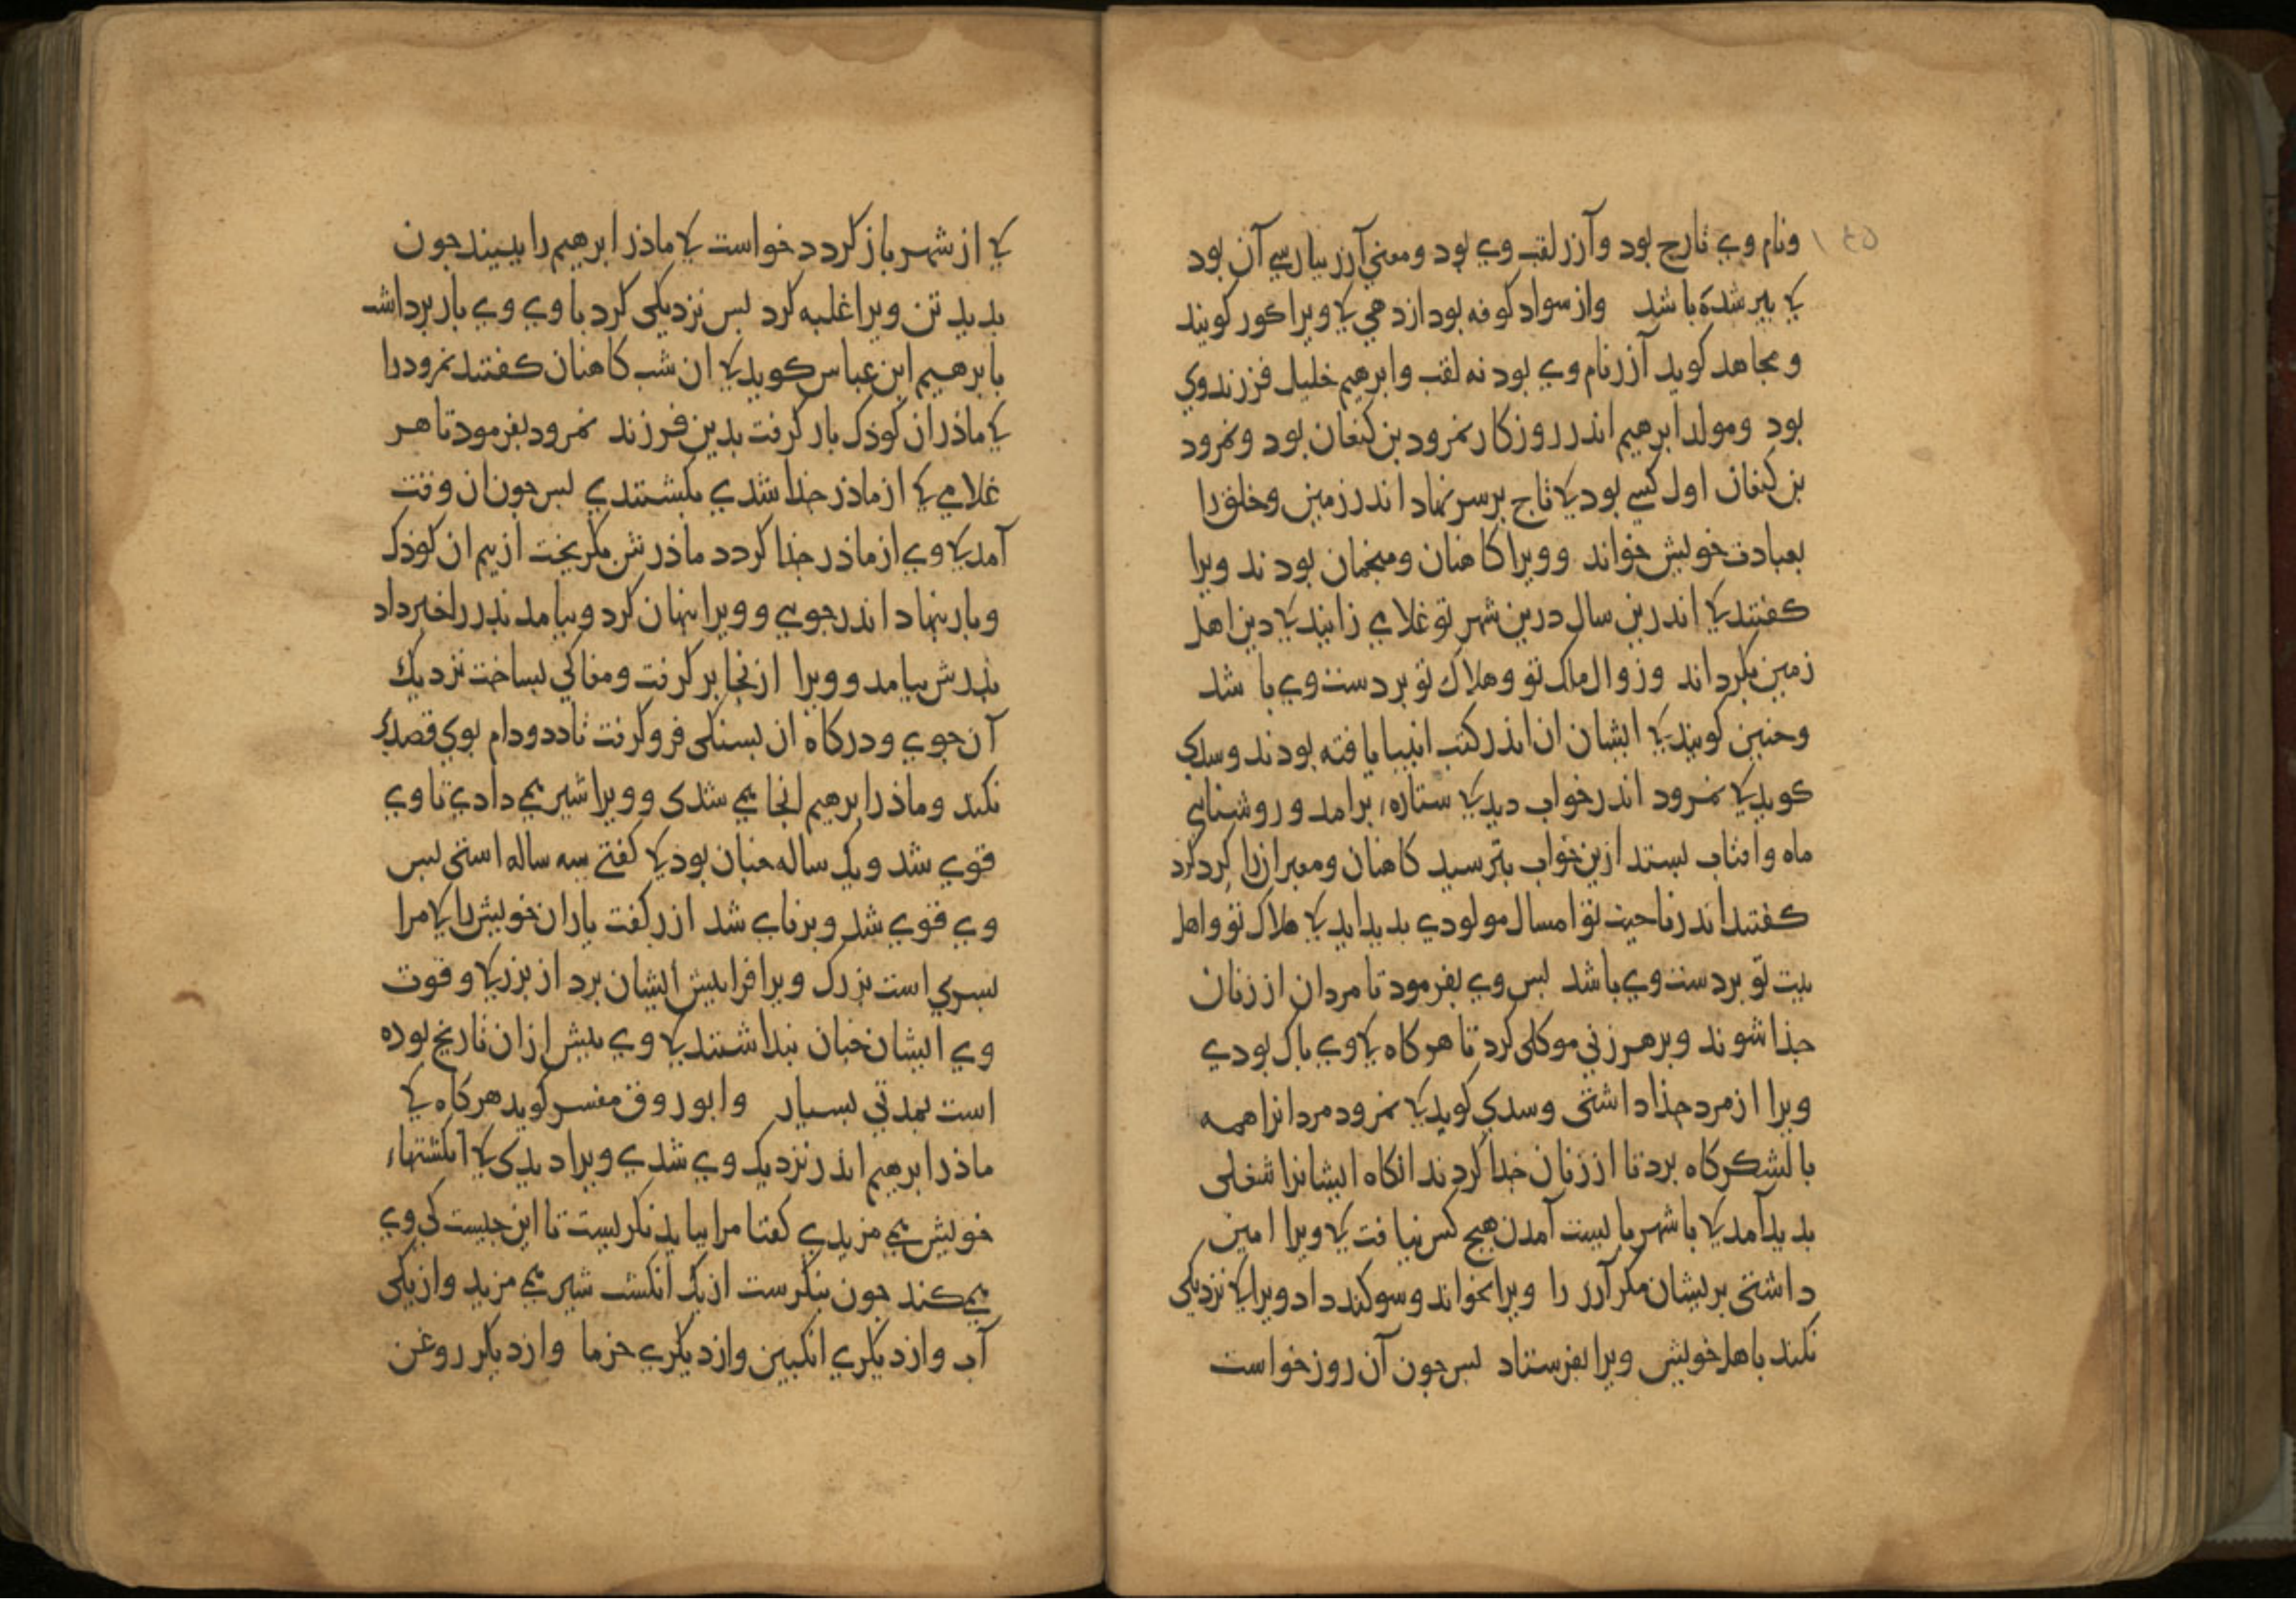 ونام وی تارح بود وآزر لقب وی بود ومعنی آزر بپارسی آن بود
کی پیر شده باشد واز سواد کوفه بود از دهی کی ویرا کور کویند
ومجاهد کوید آزر نام وی بود نه لقب وابرهیم خلیل فرزند وی
بود ومولد ابرهیم اندر روزکار نمرود بن کنعان بود ونمرود
بن کنعان اول کسی بود کی تاج بر سر نهاد اندر زمین وخلق را
بعبادت خویش خواند وویرا کاهنان ومنجمان بودند ویرا
کفتند کی اندرین سال درین شهر تو غلامی زایند کی دین اهل
زمین بکرداند وزوال ملک تو وهلاک تو بر دست وی باشد
وجنین کویند کی ایشان ان اندر کتب انبیا یافته بودند وسدی
کوید کی نمرود اندر خواب دید کی ستاره، برامد وروشنایی
ماه وافتاب بستد ازین خواب بترسید کاهنان ومعبرانرا کرد کرد
کفتند اندر ناحیت تو امسال مولودی بدید اید کی هلاک تو واهل
بیت تو بر دست وی باشد بس وی بفرمود تا مردان از زنان
جذا شوند وبر هر زنی موکلی کرد تا هرکاه کی وی باک بودی
ویرا از مرد جذا داشتی وسدی کوید کی نمرود مردانرا همه
با لشکرکاه برد تا از زنان جذا کردند انکاه ایشانرا شغلی
بدید آمد کی با شهر بایست آمدن هیج کس نیافت کی ویرا امین
داشتی بریشان مکر آزر را ویرا بخواند وسوکند داد ویرا کی نزدیکی
نکند باهل خویش ویرا بفرستاد بس جون آن روز خواست
کی از شهر باز کردد خواست کی ماذر ابرهیم را ببیند جون
بدید تن ویرا غلبه کرد بس نزدیکی کرد با وی وی بار برداشت
بابرهیم ابن عباس کوید کی ان شب کاهنان کفتند نمرود را
کی ماذر ان کوذک بار کرفت بدین فرزند نمرود بفرمود تا هر
غلامی کی از ماذر جذا شدی بکشتندی بس جون ان وقت
آمد کی وی از ماذر جذا کردد ماذرش بکریخت از بیم ان کوذک
وبار بنهاد اندر جویی وویرا بنهان کرد وبیامد بذر را خبر داد
بذرش بیامد وویرا ازنجا بر کرفت ومغاکی بساخت نزدیک
آن جوی ودرکاه ان بسنکی فرو کرفت تا دد ودام بوی قصد
نکند وماذر ابرهیم انجا می شدی وویرا شیر می دادی تا وی
قوی شد ویک ساله جنان بود کی کفتی سه ساله استی بس
وی قوی شد وبرنای شد ازر کفت یاران خویش را کی مرا
بسری است بزرک ویرا فرا بیش ایشان برد از بزرکی وقوت
وی ایشان جنان بنداشتند کی وی بیش از ان تاریخ بوده
است بمدتی بسیار وابوروق مفسر کوید هرکاه کی
ماذر ابرهیم اندر نزدیک وی شدی ویرا دیدی کی انکشتهاء
خویش می مزیدی کفتا مرا بباید نکریست تا این جیست کی وی
می کند جون بنکرست از یک انکشت شیر می مزید واز یکی
آب واز دیکری انکبین واز دیکری خرما واز دیکر روغن